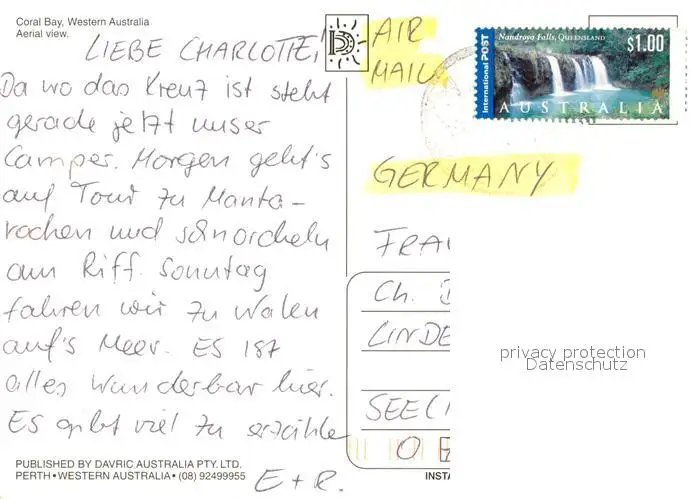 Coral Bay, Western Australia
Aerial view.
LIEBE CHARLOTTE!
Da wo das Kreuz ist steht
gerade jetzt unser
Camper. Morgen geht's
auf Tour zu Manta-
rochen und schnorcheln
am Riff. Sonntag
fahren wir zu Walen
auf's Meer. ES IST
alles wunderbar hier.
Es gibt viel zu erzähle
E + R.
PUBLISHED BY DAVRIC AUSTRALIA PTY. LTD.
PERTH • WESTERN AUSTRALIA • (08) 92499955
D
AIR
MAIL
International POST
Nandroya Falls, QUEENSLAND
$1.00
AUSTRALIA
GERMANY
FRA
Ch.
LINDE
SEEL
O
INSTA
privacy protection
Datenschutz